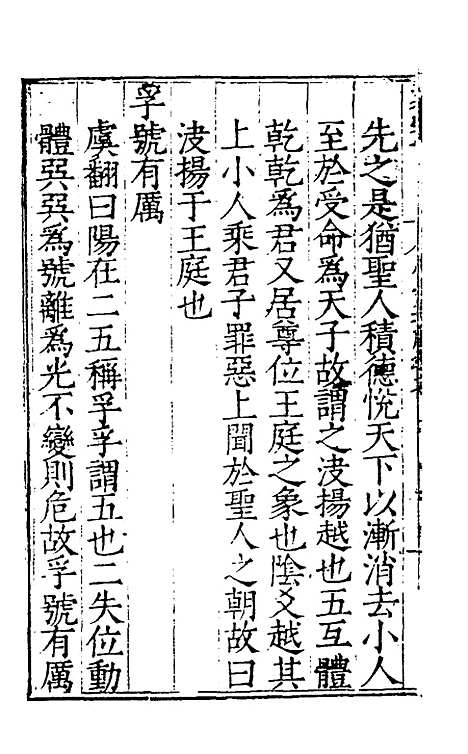 先之是猶聖人積德恱天下以漸消去小人
至於受命爲天子故謂之决揚越也五互體
乾乾爲君又居尊位王庭之象也陰爻越其
上小人乘君子罪惡上聞於聖人之朝故曰
决揚于王庭也
孚號有厲
虞翻曰陽在二五稱孚孚謂五也二失位動
體巽巽爲號離爲光不變則危故孚號有厲